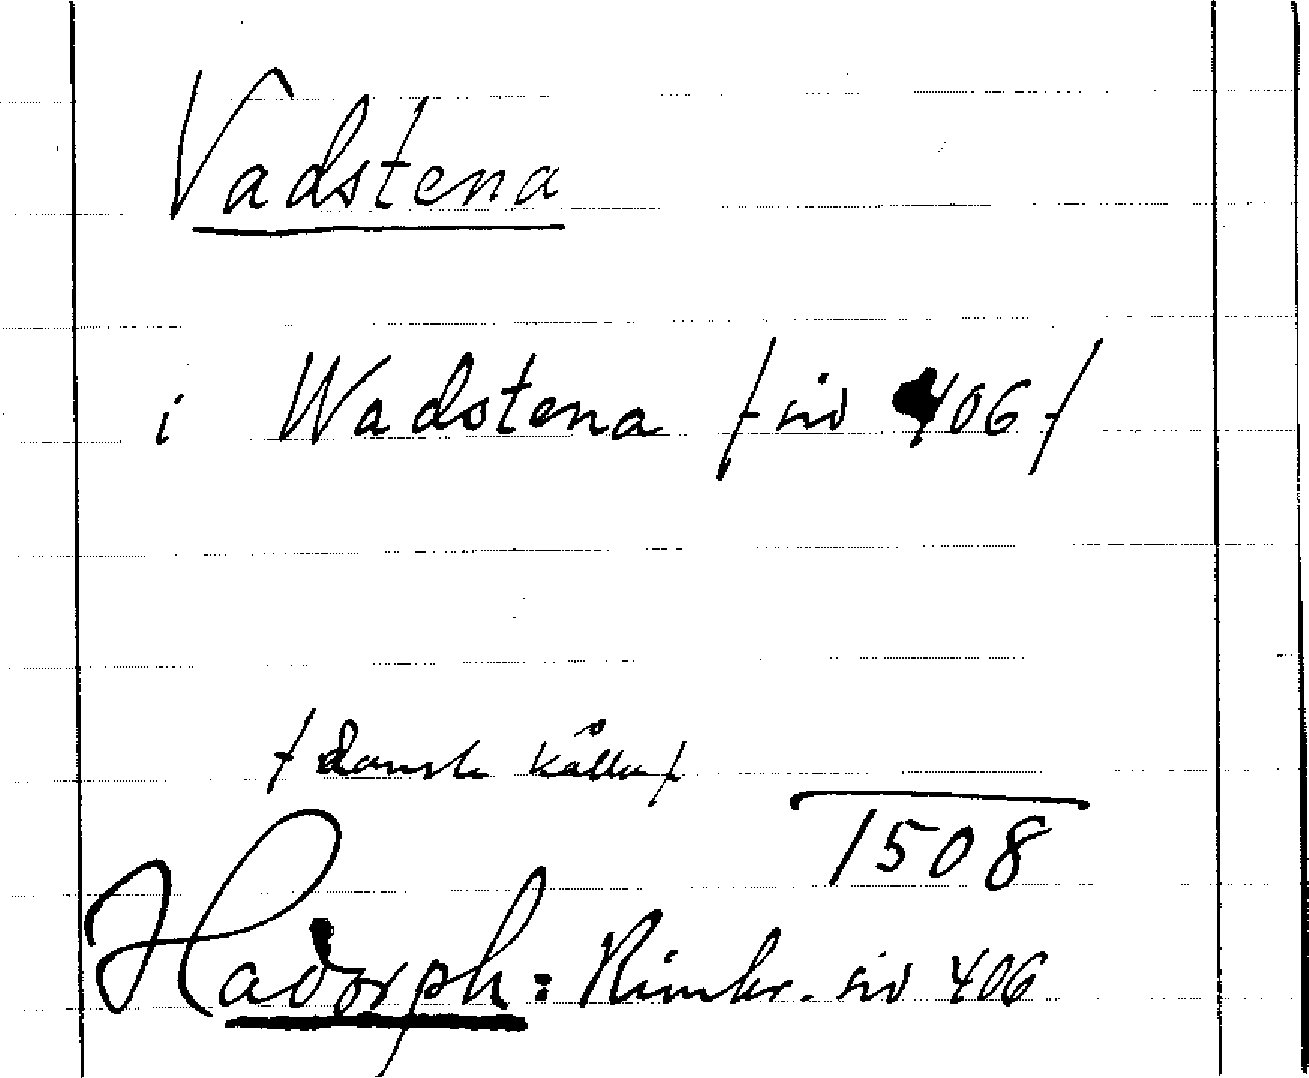 Vadstena
i Wadstena /- sid 406 -/
/ dansk källa /
1508
Hadorph: Rimkr. sid 406